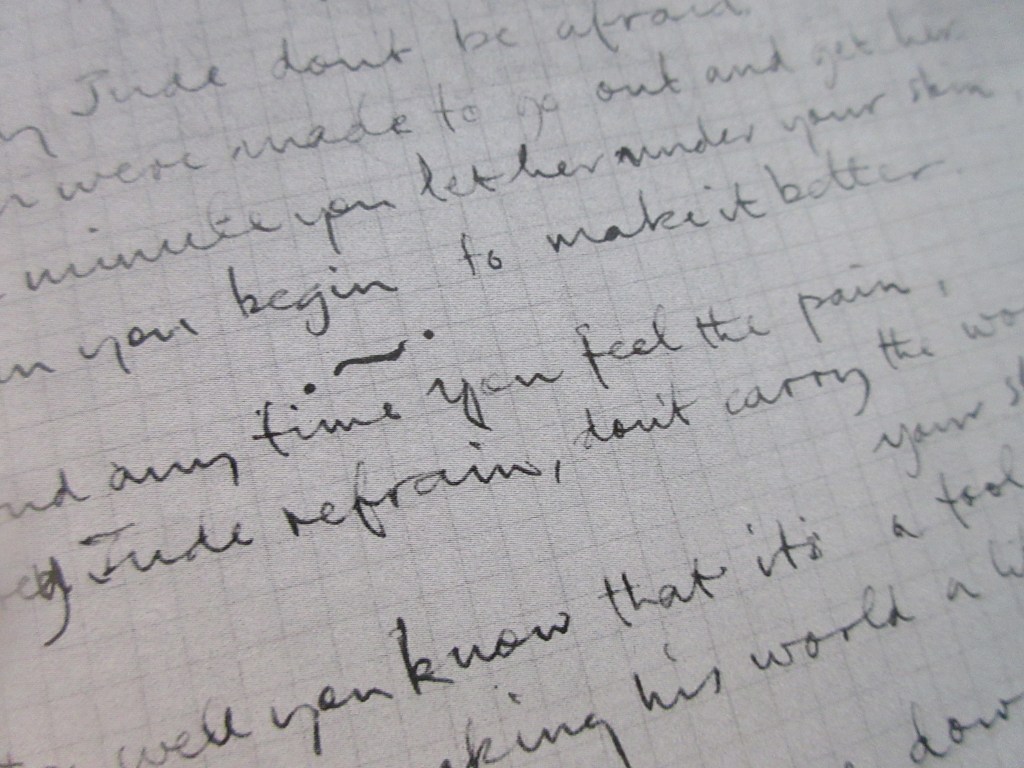 Jude dont be afraid
were made to go out and get her
minute you let her under your skin
you begin to make it better.
any time you feel the pain,
Jude refrain, don't carry the
your
well you know that its a fool
his world a
down